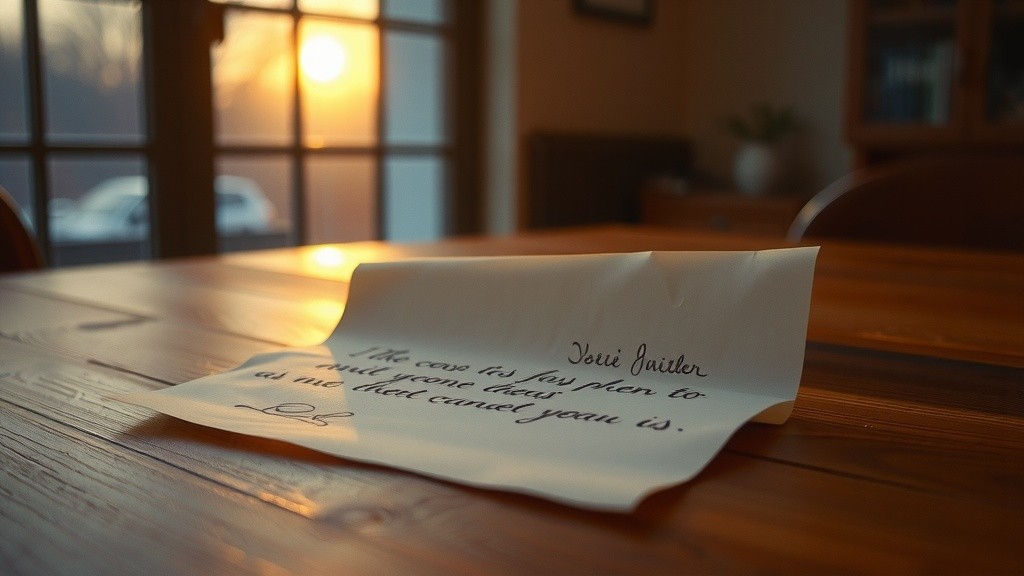 Youie Juitler
I the cose tes foss phen to
anut ycone theus
as me that cancel yoau is.